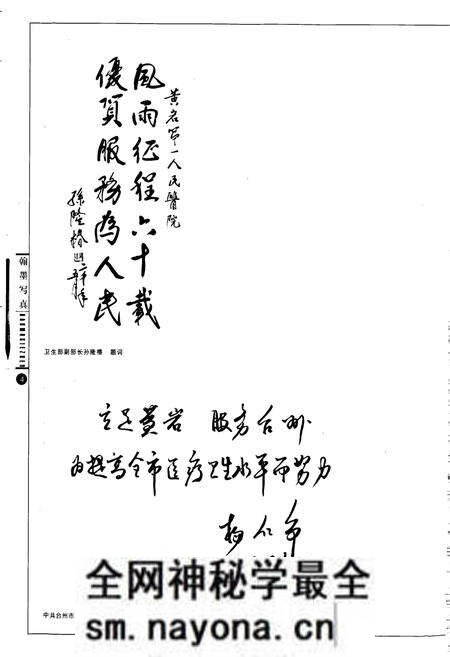 黄岩第一人民醫院
風雨征程六十載
優質服務為人民
孫隆椿
翰墨写真
4
卫生部副部长孙隆椿 题词
立足黄岩 服务台州
为提高全市医疗卫生水平而努力
杨仁争
中共台州市
全网神秘学最全
sm.nayona.cn